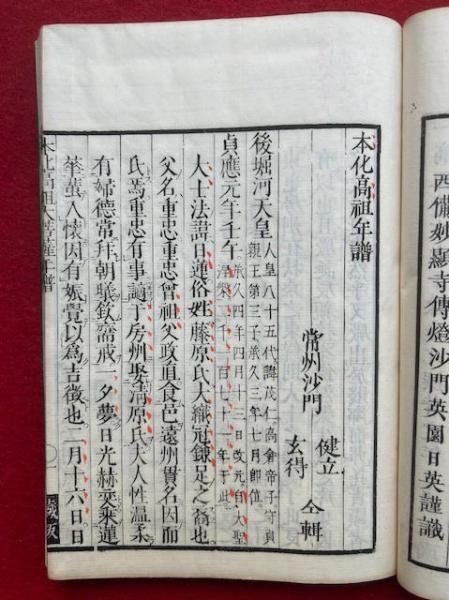 西備妙顯寺傳燈沙門英園日英謹識
本化高祖年譜
常州沙門
健立
玄得
仝輯
後堀河天皇
人皇八十五代諱茂仁高倉帝子守貞
親王第三子承久三年七月即位
貞應元年壬午
承久四年四月十三日改元自大聖
涅槃二千百七十一年于此
大士法諱日蓮俗姓藤原氏大織冠鎌足之裔也
父名重忠重忠曾祖父政直食邑遠州貫名因而
氏焉重忠有事謫于房州娶清原氏夫人性温柔
有婦德常拜朝曦欽齋戒一夕夢日光赫奕乘蓮
華入懷因有娠覺以為吉徴也二月十六日日